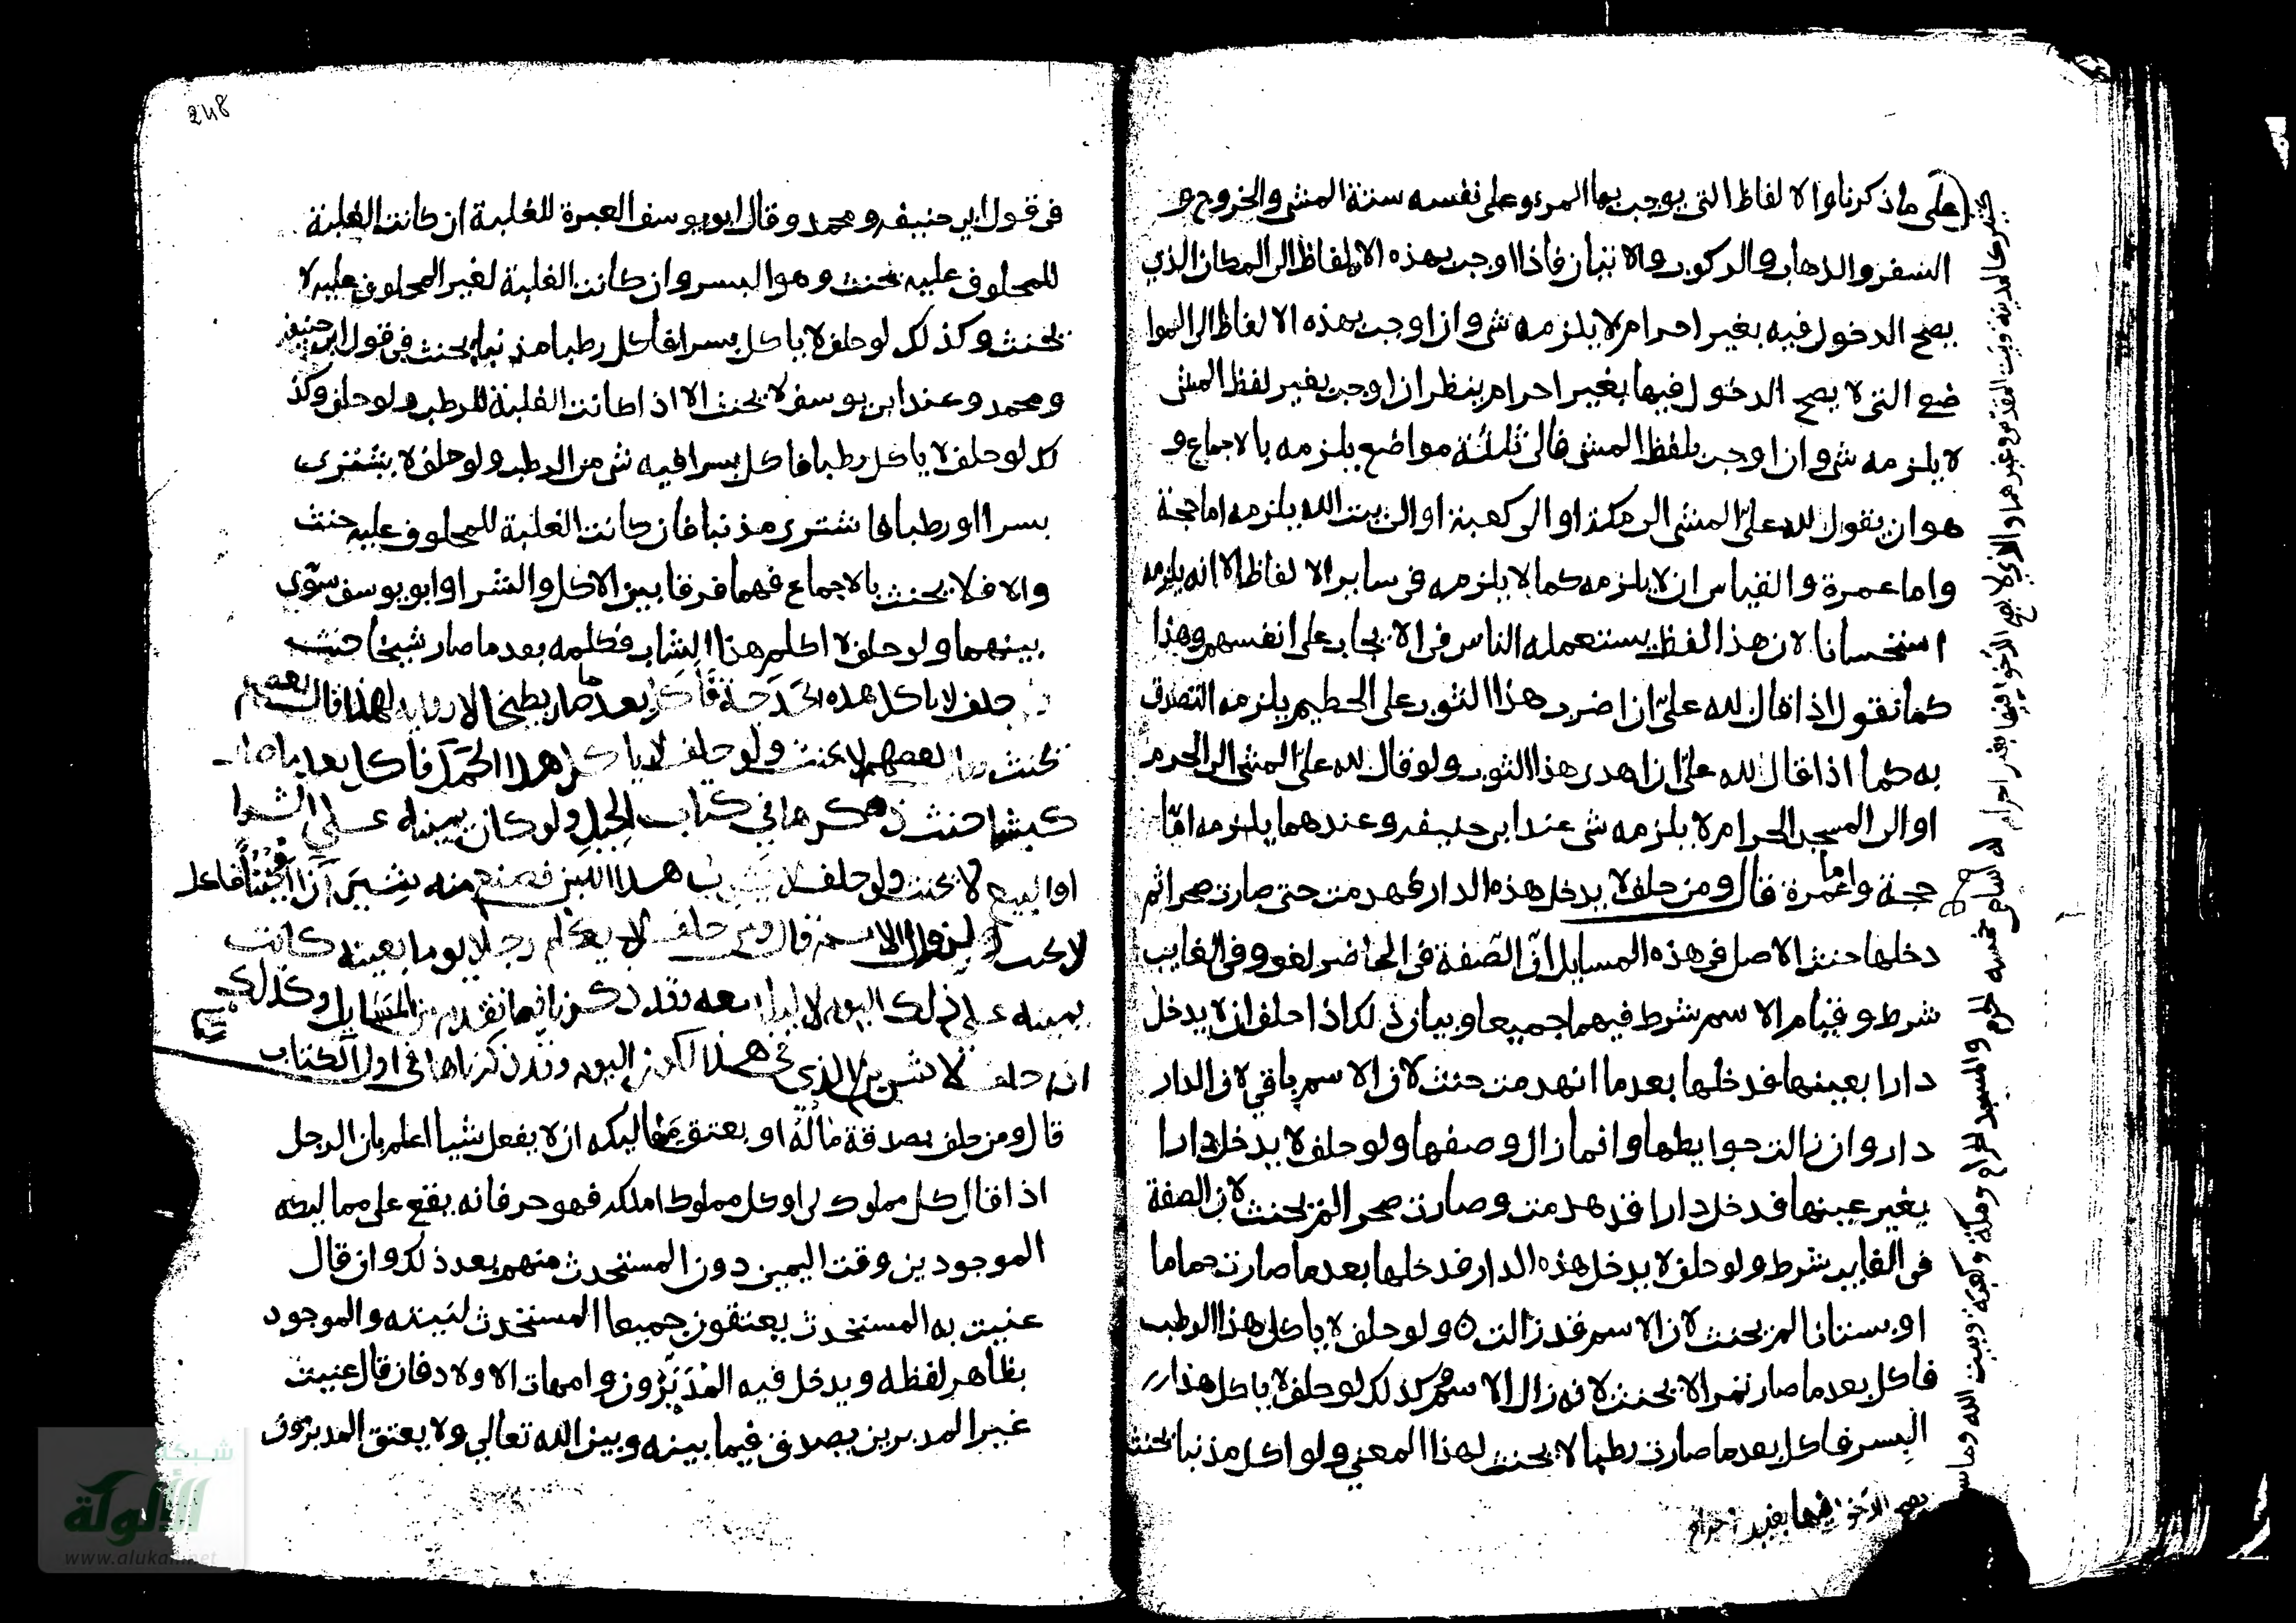 على ما ذكرنا والالفاظ التى يوجب بها المرء على نفسه ستة المشى والخروج و
السفر والذهاب والركوب والاتيان فاذا اوجب بهذه الالفاظ الى المكان الذي
يصح الدخول فيه بغير احرام لا يلزمه شى وان اوجب بهذه الالفاظ الى الموا
ضع التى لا يصح الدخول فيها بغير احرام ينظر ان اوجب بغير لفظ المشى
لا يلزمه شى وان اوجب بلفظ المشى فالى ثلثة مواضع يلزمه بالاجماع و
هو ان يقول لله علىّ المشى الى مكة او الى كعبة او الى بيت الله يلزمه اما حجة
واما عمرة والقياس ان لا يلزمه كما لا يلزمه فى ساير الالفاظ الا انه يلزمه
استحسانا لان هذا لفظ يستعمله الناس فى الايجاب على انفسهم وهذا
كما نقول اذا قال لله علىّ ان اضرب هذا الثوب على الحطيم يلزمه التصدق
به كما اذا قال لله علىّ ان اهدى هذا الثوب ولو قال لله علىّ المشى الى الحرم
او الى المسجد الحرام لا يلزمه شى عند ابى حنيفه وعندهما يلزمه امّا
حجة واما عمرة قال ومن حلف لا يدخل هذه الدار فهدمت حتى صارت صحرا ثم
دخلها حنث الاصل فى هذه المسايل انّ الصّفة فى الحاضر لغو وفى الغايب
شرط وقيام الاسم شرط فيهما جميعا وبيان ذلك اذا حلف ان لا يدخل
دارا بعينها فدخلها بعدما انهدمت حنث لان الاسم باقي لان الدار
دار وان زالت حوايطها وانما زال وصفها ولو حلف لا يدخل دارا
بغير عينها فدخل دارا قد هدمت وصارت صحرا لم يحنث لان الصفة
فى الغايب شرط ولو حلف لا يدخل هذه الدار فدخلها بعدما صارت حماما
او بستانا لم يحنث لان الاسم قد زالت ه ولو حلف لا ياكل هذا الرطب
فاكل بعد ما صار تمرا لا يحنث لانه زال الاسم وكذلك لو حلف لا ياكل هذا
البسر فاكل بعدما صارت رطبا لا يحنث لهذا المعني ولو اكل مذنبا يحنث
الدخول فيها بغير احرام
248
فى قول ابى حنيفه ومحمد وقال ابو يوسف العبرة للغلبة ان كانت الغلبة
للمحلوف عليه يحنث وهو البسر وان كانت الغلبة لغير المحلوف عليه لا
يحنث وكذلك لو حلف لا ياكل بسرا فاكل رطبا مذنبا يحنث فى قول ابى حنيفه
ومحمد وعند ابى يوسف لا يحنث الا اذا كانت الغلبة للرطب ولو حلف وكذ
لك لو حلف لا ياكل رطبا فاكل بسرا فيه شى من الرطب ولو حلف لا يشترى
بسرا او رطبا فاشترى مذنبا فان كانت الغلبة للمحلوف عليه حنث
والا فلا يحنث بالاجماع فهما فرقا بين الاكل والشرا وابو يوسف سوّى
بينهما ولو حلف لا اكلم هذا الشاب فكلمه بعد ما صار شيخا حنث
حلف لا ياكل هذه الحَدَجة فاكل بعد ما صار بطيخا لا رواية لهذا قال بعضهم
يحنث وقال بعضهم لا يحنث ولو حلف لا ياكل هذا الحَمَل فاكل بعد ما صار
كبشا حنث ذكرها في كتاب الحيل ولو كان يمينه على الشرا
او البيع لا يحنث ولو حلف لا يشرب هذا اللبن فصنع منه شيراز او جبنا فاكل
لا يحنث لزوال الاسم قال ومن حلف لا يكلم رجلا يوما بعينه كانت
يمينه على ذلك اليوم لا ليلة معه وقد ذكرنا فيما تقدم من المسايل وكذلك
ان حلف لا شربن الذي في هذا الكوز اليوم وقد ذكرناها في اول الكتاب
قال ومن حلف بصدقة ماله او بعتق مماليكه ان لا يفعل شيا اعلم بان الرجل
اذا قال كل مملوك لى او كل مملوك املكه فهو حر فانه يقع على مماليكه
الموجودين وقت اليمين دون المستحدث منهم بعد ذلك وان قال
عنيت به المستحدث يعتقون جميعا المستحدث لنيته والموجود
بظاهر لفظه ويدخل فيه المدَبَّرون وامهات الاولاد فان قال عنيت
غير المدبرين يصدق فيما بينه وبين الله تعالي ولا يعتق المدبرون
شبكة
الألوكة
www.alukah.net